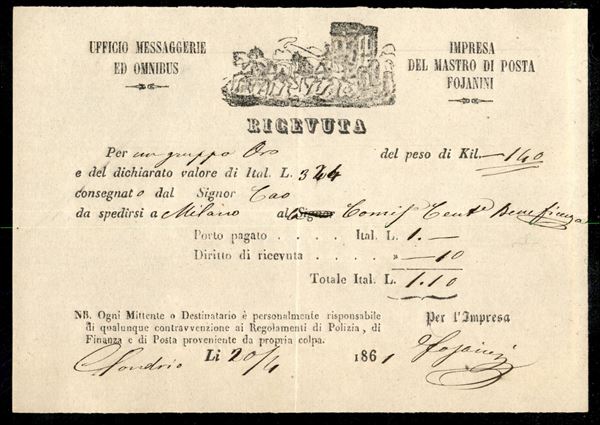 UFFICIO MESSAGGERIE
ED OMNIBUS
IMPRESA
DEL MASTRO DI POSTA
FOJANINI
RICEVUTA
Per un gruppo Oro del peso di Kil. — 140
e del dichiarato valore di Ital. L. 324
consegnato dal Signor
da spedirsi a Milano al Signor Beneficenza
Porto pagato . . . . Ital. L. 1. —
Diritto di ricevuta . . . . » — 10
Totale Ital. L. 1.10
NB. Ogni Mittente o Destinatario è personalmente risponsabile
di qualunque contravvenzione ai Regolamenti di Polizia, di
Finanza e di Posta proveniente da propria colpa.
Per l'Impresa
Sondrio Li 20/4 1861 Fojanini